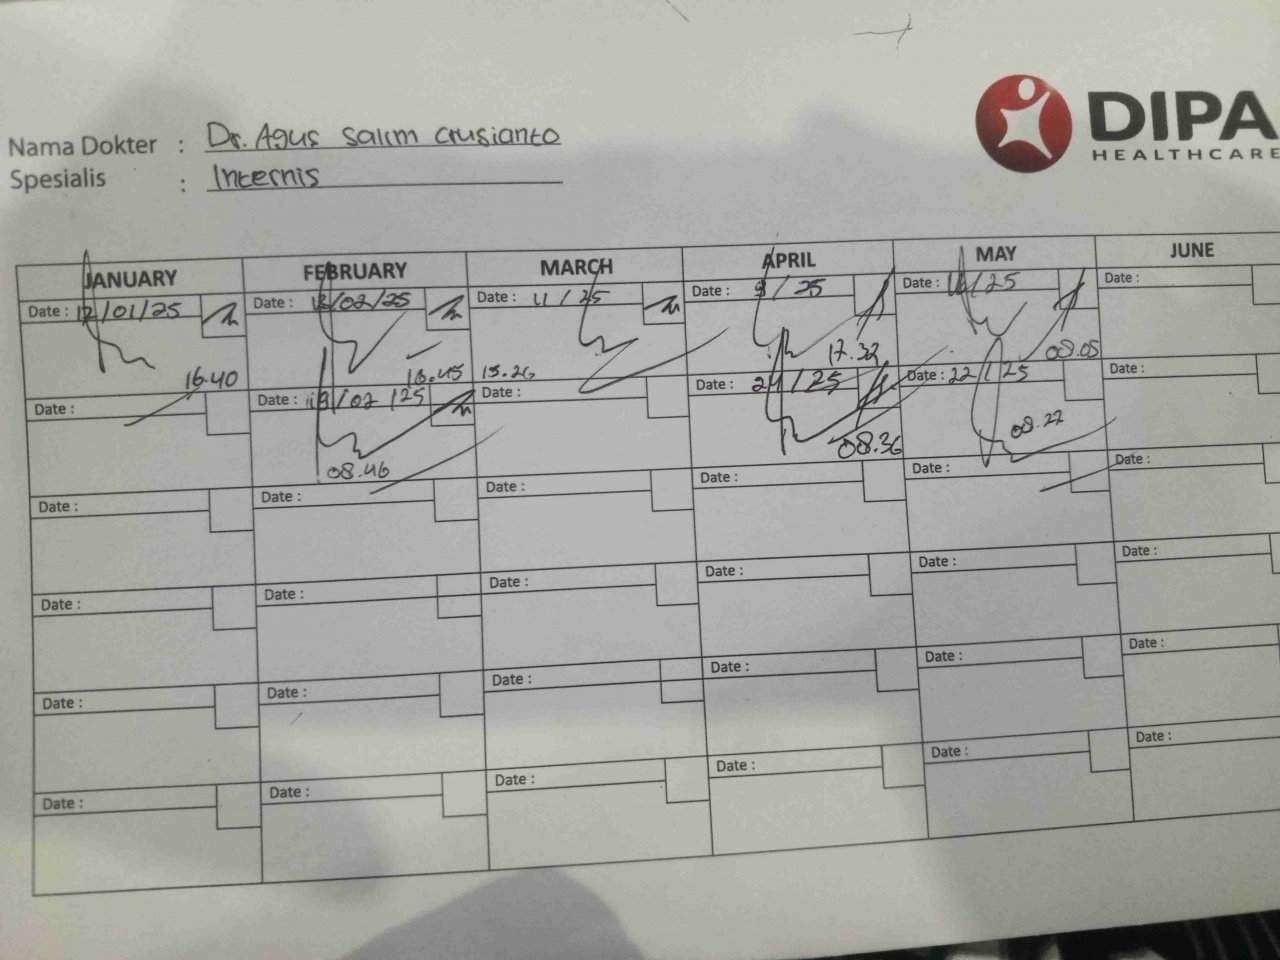 DIPA
HEALTHCARE
Nama Dokter : Dr. Agus Salim Crusianto
Spesialis : Internis
JANUARY FEBRUARY MARCH APRIL MAY JUNE
Date : 12/01/25 Date : 12/02/25 Date : 11/25 Date : 9/25 Date : /25 Date :
16.40 16.45 15.26 17.32 08.05
Date : Date : 19/02/25 Date : Date : /25 Date : 22/25 Date :
08.46 08.36 08.22
Date : Date : Date : Date : Date : Date :
Date : Date : Date : Date : Date : Date :
Date : Date : Date : Date : Date : Date :
Date : Date : Date : Date : Date : Date :